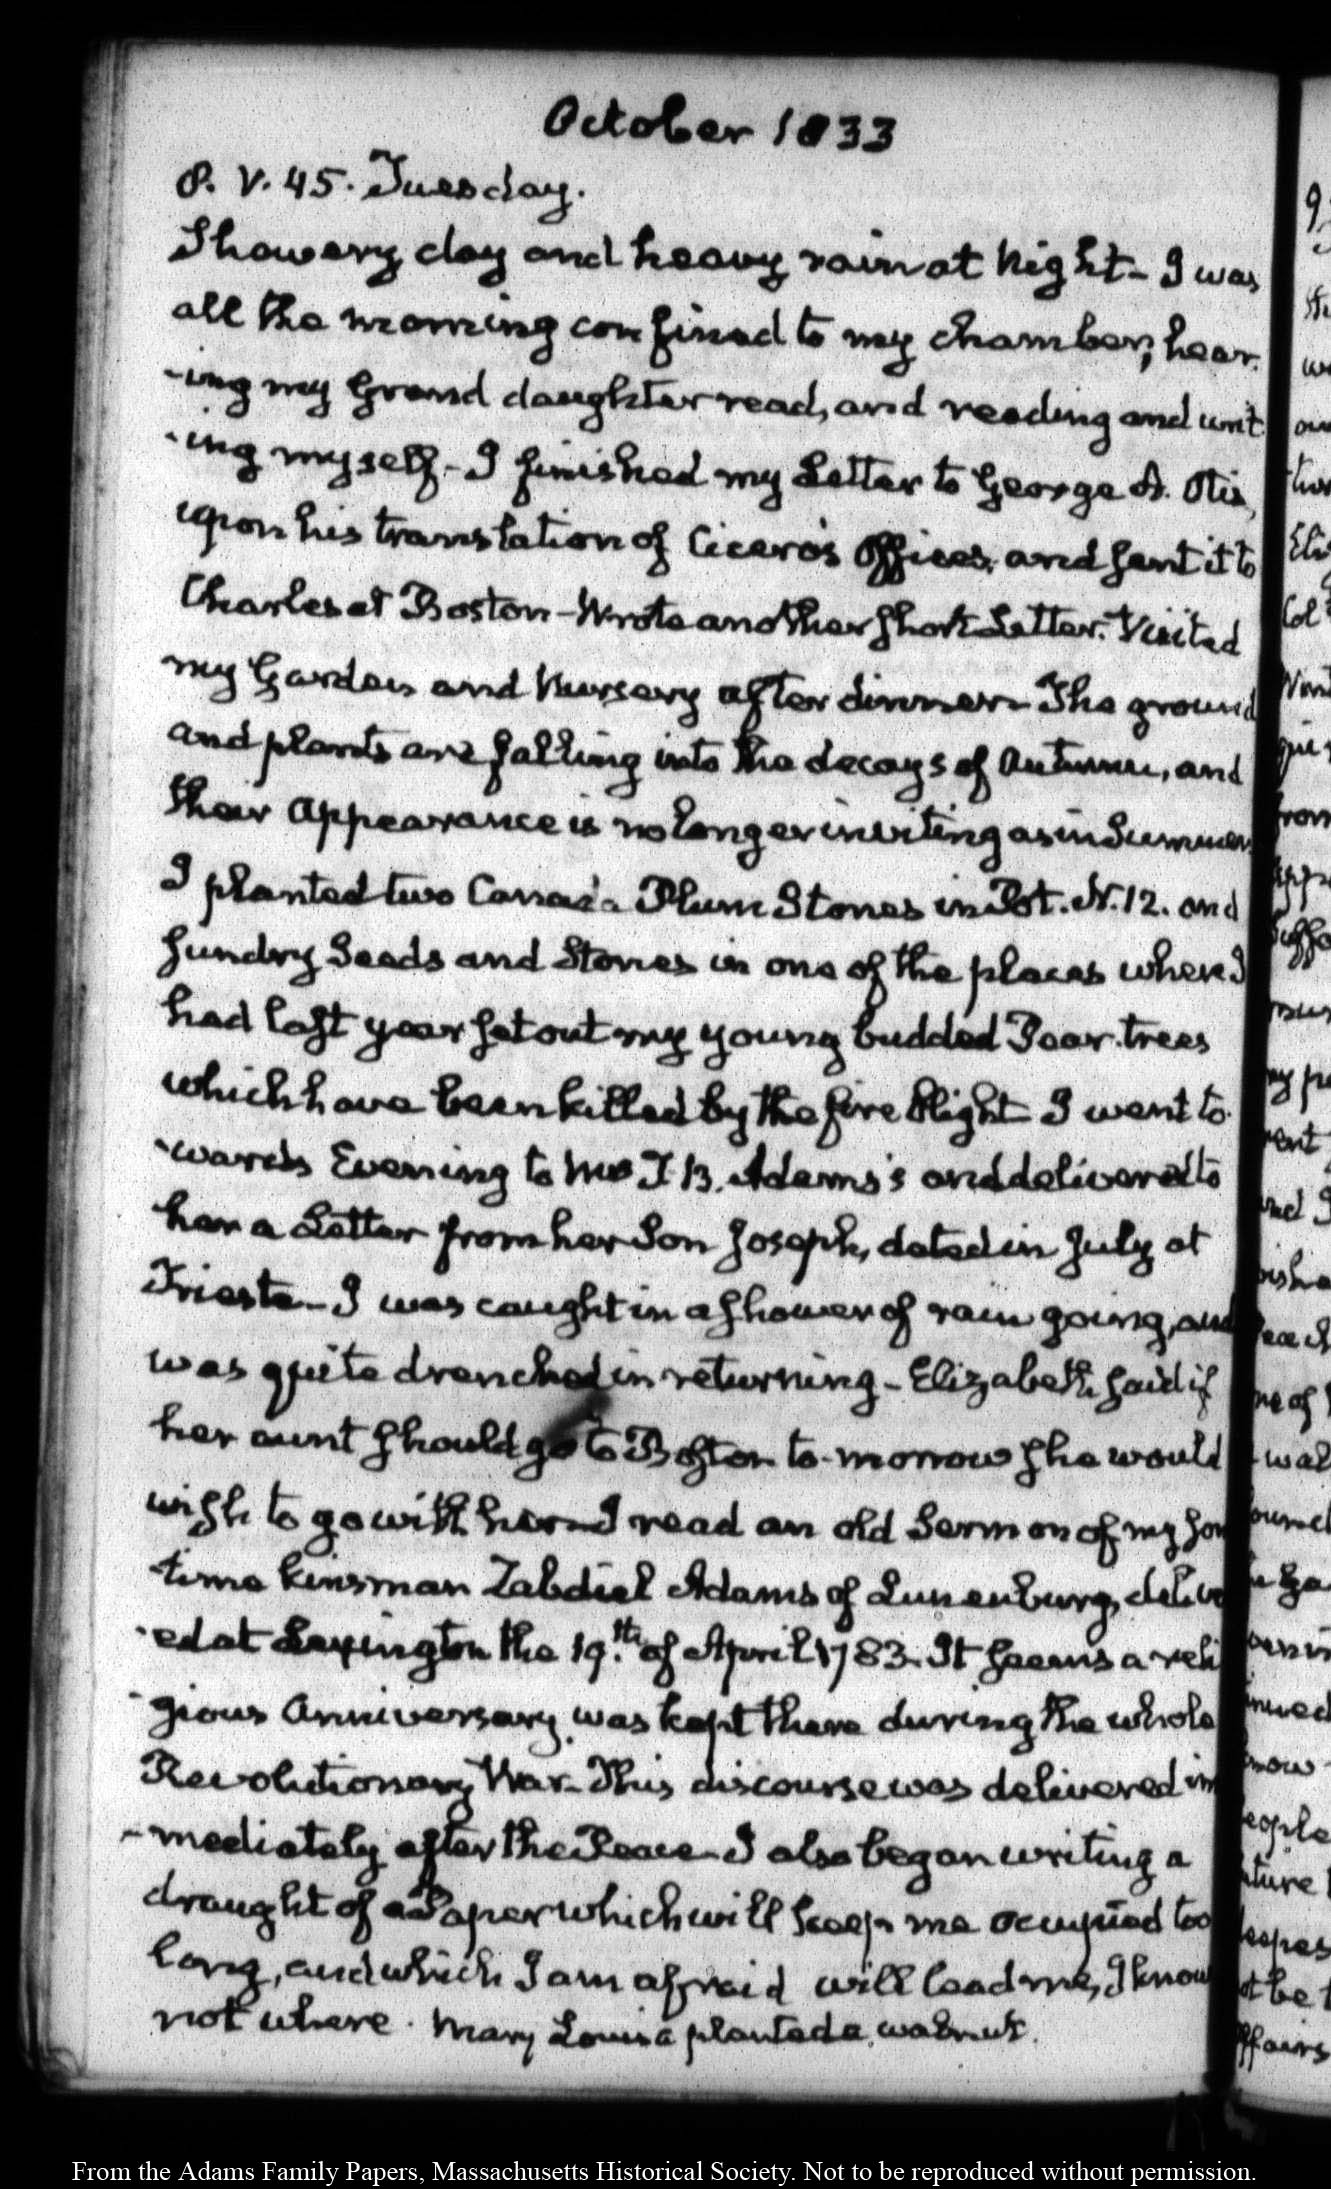 October 1833
8. V. 45. Tuesday.
Showery day and heavy rain at Night - I was
all the morning confined to my chamber, hear-
-ing my Grand daughter read, and reading and writ
-ing myself - I finished my Letter to George A. Otis,
upon his translation of Cicero's Offices, and sent it to
Charles at Boston - Wrote another short Letter. Visited
my Garden and Nursery after dinner - The ground
and plants are falling into the decays of Autumn, and
their Appearance is no longer inviting as in Summer.
I planted two Canada Plum Stones in Pot. N. 12. and
sundry Seeds and Stones in one of the places where I
had last year set out my young budded Pear-trees
which have been killed by the fire blight - I went to-
-wards Evening to Mrs T. B. Adams's and delivered to
her a Letter from her Son Joseph, dated in July at
Trieste - I was caught in a shower of rain going, and
was quite drenched in returning - Elizabeth said if
her aunt should go to Boston to-morrow she would
wish to go with her - I read an old Sermon of my some
-time kinsman Zabdiel Adams of Lunenburg, deliver
-ed at Lexington the 19.th of April 1783. It seems a reli
-gious Anniversary was kept there during the whole
Revolutionary War - This discourse was delivered im
-mediately after the Peace - I also began writing a
draught of a Paper which will keep me occupied too
long, and which I am afraid will lead me, I know
not where. Mary Louisa planted a walnut.
From the Adams Family Papers, Massachusetts Historical Society. Not to be reproduced without permission.